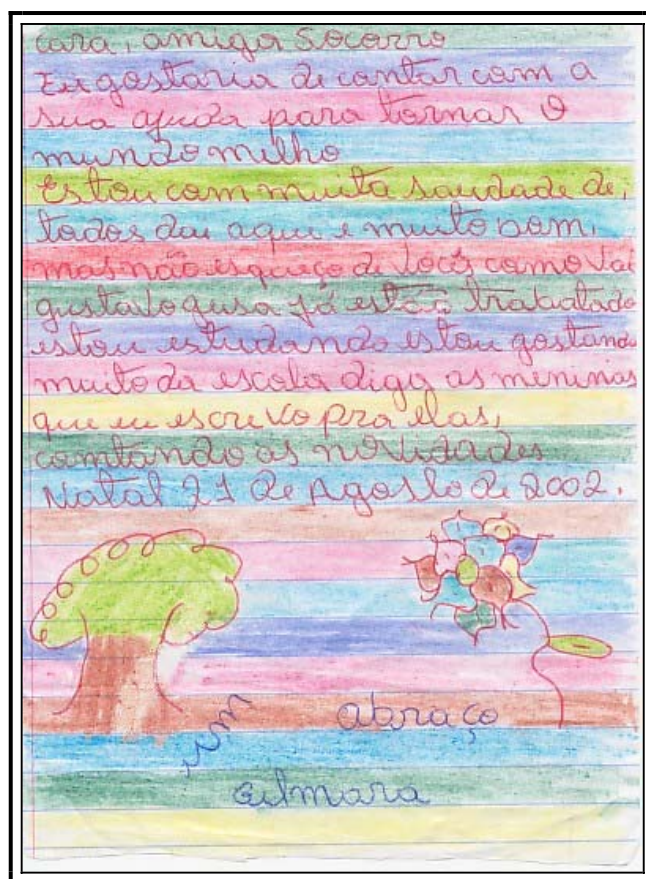 cara, amiga Socorro
Eu gostaria de contar com a
sua ajuda para tornar o
mundo milho
Estou com muita saudade de,
todos dai aqui e muito bom,
mas não esqueço de vocês como vai
gustavo já estão trabalhado
estou estudando estou gostando
muito da escola diga as meninas
que eu escrevo pra elas,
comtando as novidades
Natal 21 de Agosto de 2002.
um abraço
Gilmara